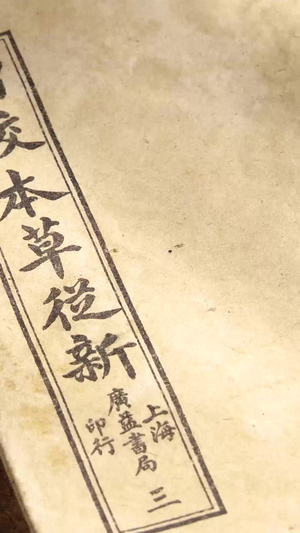 校本草從新
上海
廣益書局
印行
三